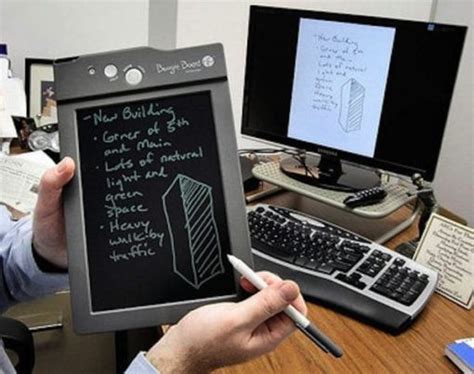 Boogie Board
- New Building
• Corner of 5th
and Main
• Lots of natural
light and
green
space
• Heavy
walk-by
traffic
- New Building
• Corner of 5th
and Main
• Lots of natural
light and
green
space
• Heavy
walk-by
traffic